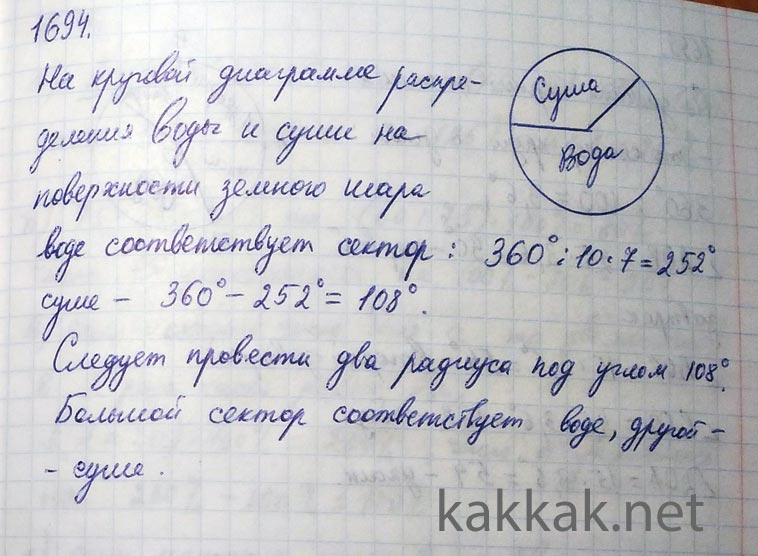 1694.
На круговой диаграмме распре-
деления воды и суши на
поверхности земного шара
воде соответствует сектор: 360°:10·7=252°
суше – 360°-252°=108°.
Следует провести два радиуса под углом 108°.
Большой сектор соответствует воде, другой-
- суше.
Суша
Вода
kakkak.net